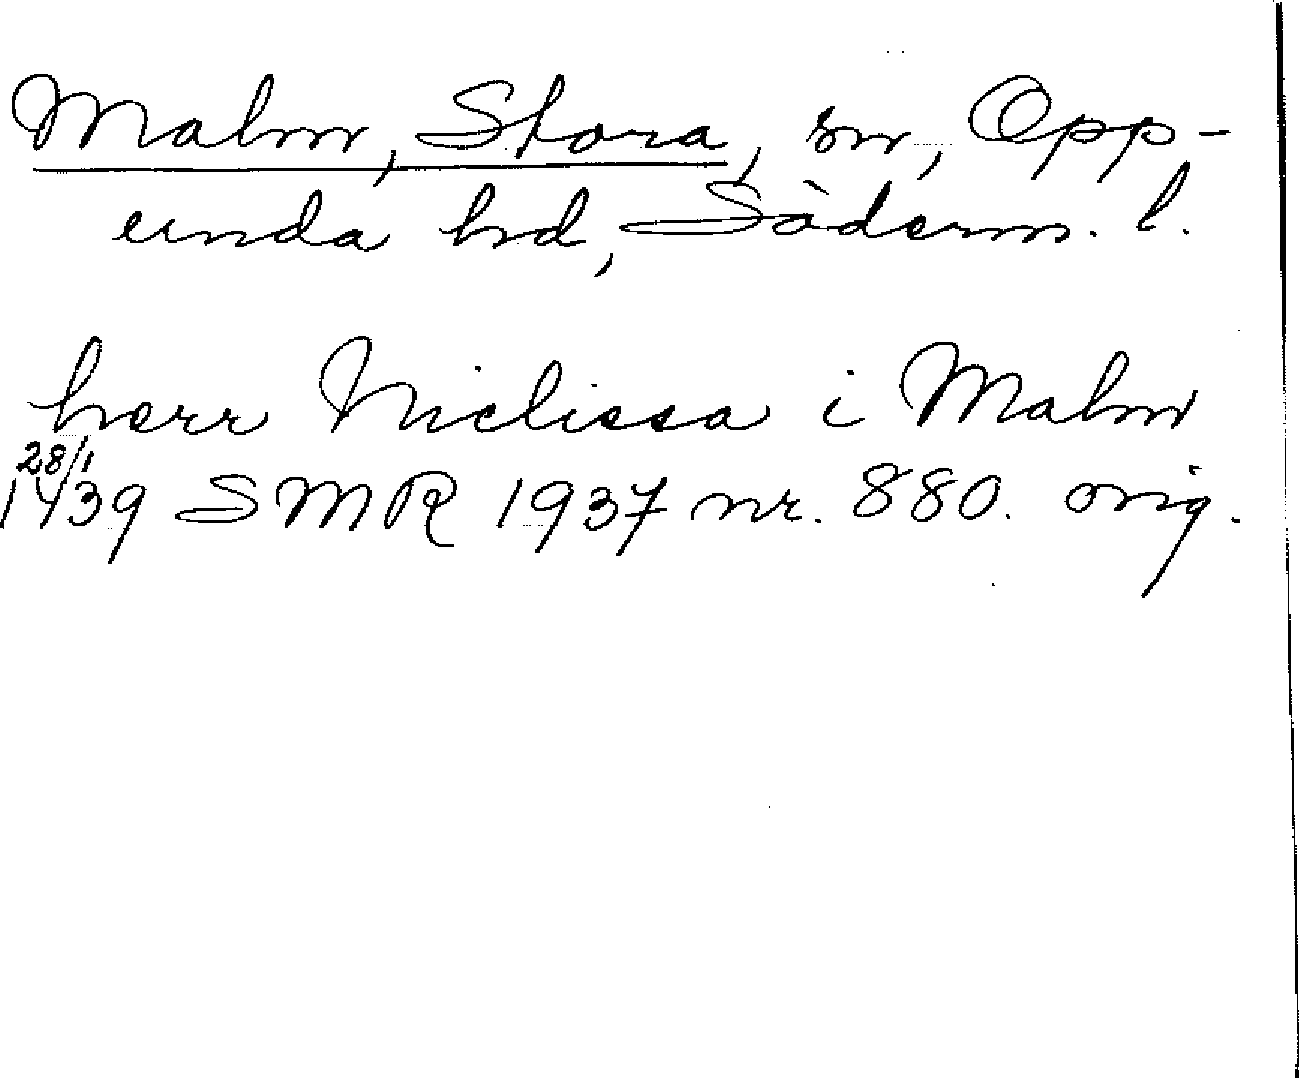 Malm, Stora, sn, Opp-
unda hd, Söderm. l.
herr Niclissa i Malm
28/1
1439 SMR 1937 nr. 880. orig.